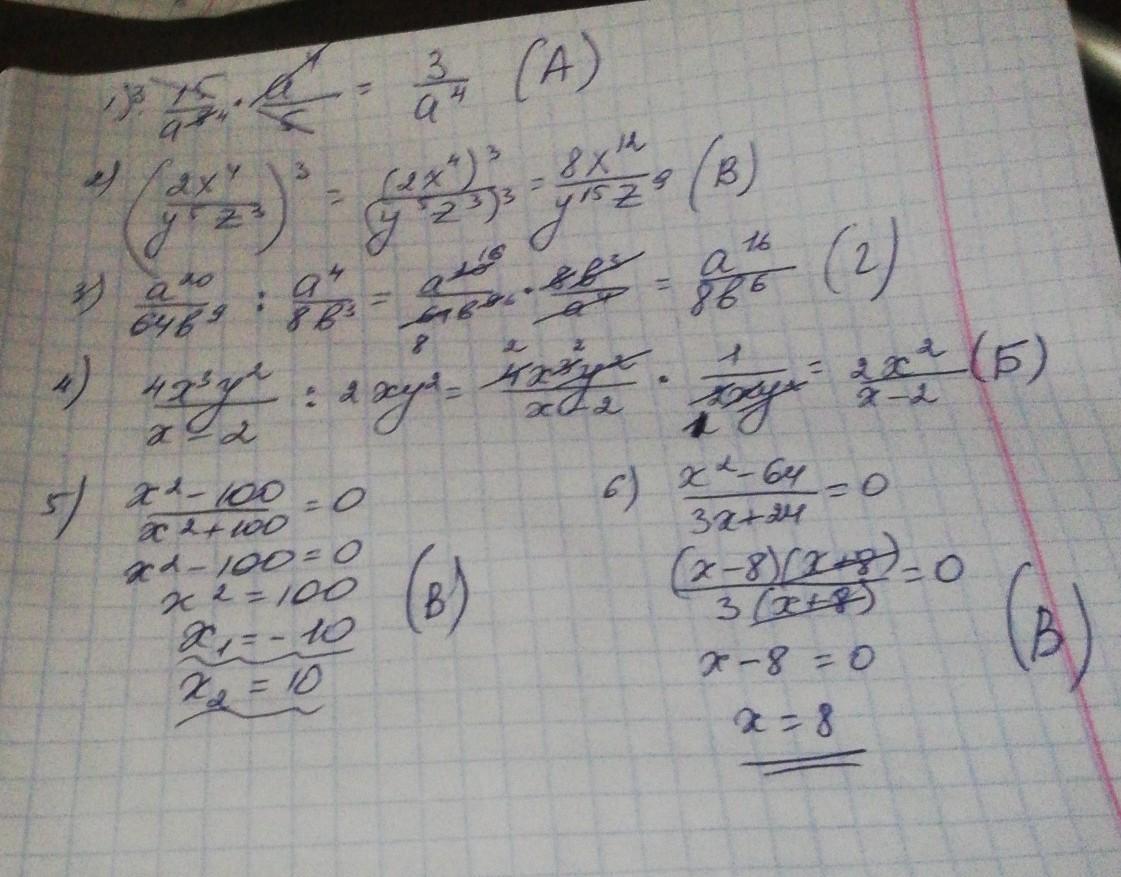 1) 15/a⁴ · a/5 = 3/a⁴ (А)
2) (2x⁴/y⁵z³)³ = (2x⁴)³/(y⁵z³)³ = 8x¹²/y¹⁵z⁹ (В)
3) a²⁰/64b⁹ : a⁴/8b³ = a²⁰ ¹⁶/64 8 b⁹ ⁶ · 8b³/a⁴ = a¹⁶/8b⁶ (Г)
4) 4x³y²/x-2 : 2xy² = 4x³y²/x-2 · 1/2xy² = 2x²/x-2 (Б)
5) x²-100/x²+100 = 0
x²-100=0
x²=100 (В)
x₁=-10
x₂=10
6) x²-64/3x+24 = 0
(x-8)(x+8)/3(x+8) = 0
(В)
x-8=0
x=8